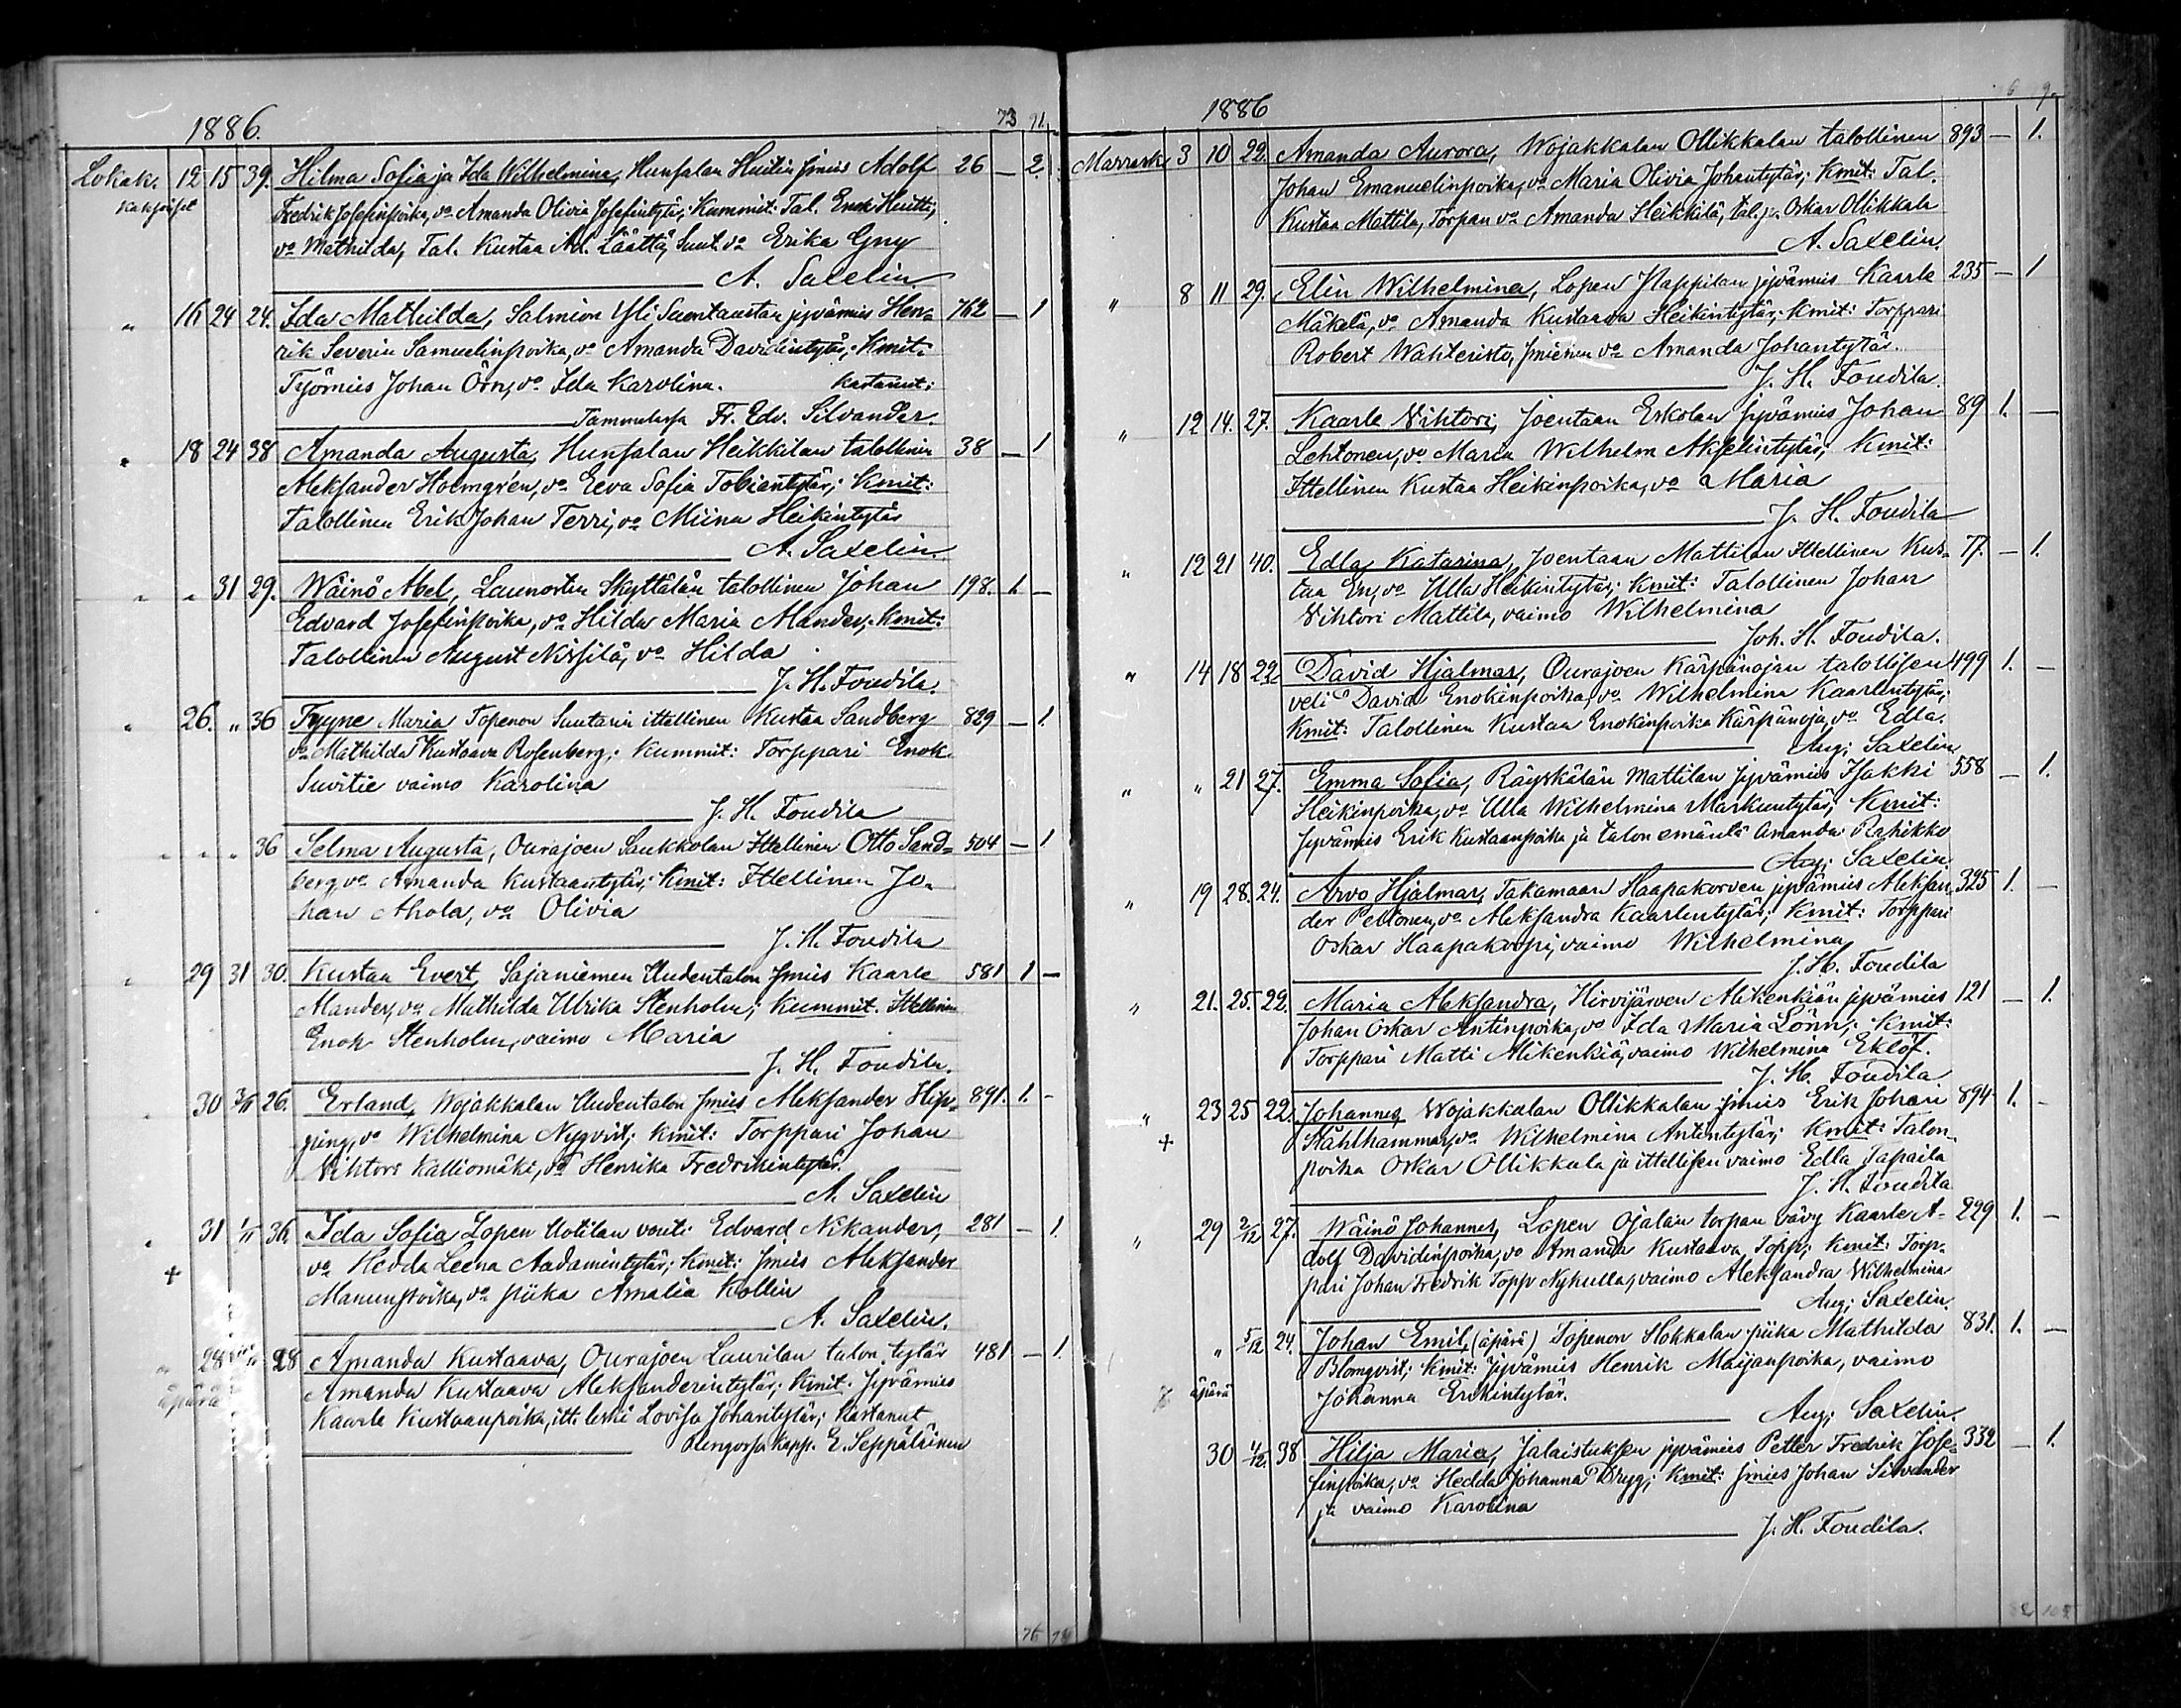 1886.
73 91.
Lokak. 12 15 39. Hilma Sofia ja Ida Wilhelmina, Hunsalan Huitin Jmies Adolf 26 — 2.
Kaksoiset Fredrik Josefinpoika, vo Amanda Olivia Josefintytär; Kummit: Tal. Enok Huitti,
vo Mathilda, Tal. Kustaa Ad. Läättä, Suut. vo Erika Gny
A. Saxelin.
" 16 24 24. Ida Mathilda, Salmion Yli Suontaustan jyvämies Hen= 762 — 1
rik Severin Samuelinpoika, vo Amanda Davidintytär; Kmit:
Työmies Johan Örn, vo Ida Karolina. Kastanut:
Tammelassa Fr. Edv. Silvander.
" 18 24 38 Amanda Augusta, Hunsalan Heikkilan talollinen 38 — 1
Aleksander Holmgren, vo Eeva Sofia Tobiantytär; Kmit:
Talollinen Erik Johan Terri, vo Miina Heikintytär
A. Saxelin.
" " 31 29. Wäinö Abel, Launosten Skyttälän talollinen Johan 198. 1. —
Edvard Josefinpoika, vo Hilda Maria Alander; Kmit:
Talollinen August Nissilä, vo Hilda
J. H. Foudila.
" 26. " 36 Tyyne Maria Topenon Suutarin ittellinen Kustaa Sandberg 829 — 1.
vo Mathilda Kustaava Rosenberg; Kummit: Torppari Enok
Suvitie vaimo Karolina
J. H. Foudila
" " " 36 Selma Augusta, Ourajoen Saukkolan Ittellinen Otto Sand= 504 — 1
berg, vo Amanda Kustaantytär; Kmit: Ittellinen Jo=
han Ahola, vo Olivia
J. H. Foudila
" 29 31 30. Kustaa Evert, Sajaniemen Uudentalon Jmies Kaarle 581 1 —
Alander, vo Mathilda Ulrika Stenholm; Kummit. Ittellinen
Enok Stenholm, vaimo Maria
J. H. Foudila.
" 30 3/11 26. Erland, Wojakkalan Uudentalon Jmies Aleksander Hip= 891. 1. -
ping, vo Wilhelmina Nyqvist; Kmit: Torppari Johan
Vihtori Kalliomäki, vo Henrika Fredrikintytär.
A. Saxelin
" 31 1/11 36. Ida Sofia Lopen Uotilan vouti Edvard Nikander, 281 — 1.
+ vo Hedda Leena Aadamintytär; Kmit: Jmies Aleksander
Manuunpoika, vo piika Amalia Kollin
A. Saxelin.
" 28 28 Amanda Kustaava, Ourajoen Laurilan talon tytär 481 — 1.
äpärä Amanda Kustaava Aleksanderintytär; Kmit. Jyvämies
Kaarle Kustaanpoika, itt. leski Lovisa Johantytär; Kastanut
Rengossa kapp. E. Seppäläinen
76
1886
6 9.
Marrask 3 10 22. Amanda Aurora, Wojakkalan Ollikkalan talollinen 893 — 1.
Johan Emanuelinpoika, vo Maria Olivia Johantytär; Kmit: Tal.
Kustaa Mattila, Torpan vo Amanda Heikkilä, tal. p. Oskar Ollikkala
A. Saxelin.
" 8 11 29. Elin Wilhelmina, Lopen Pappilan jyvämies Kaarle 235 — 1
Mäkelä, vo Amanda Kustaava Heikintytär; Kmit: Torppari
Robert Wahteristo, Jmiehen vo Amanda Johantytär.
J. H. Foudila.
" 12 14. 27. Kaarle Vihtori, Joentaan Erkolan Jyvämies Johan 89 1. —
Lehtonen, vo Maria Wilhelm Akselintytär; Kmit:
Ittellinen Kustaa Heikinpoika, vo Maria
J. H. Foudila
" 12 21 40. Edla Katarina, Joentaan Mattilan Ittellinen Kus= 77. — 1.
taa En, vo Ulla Heikintytär; Kmit: Talollinen Johan
Vihtori Mattila, vaimo Wilhelmina
Joh. H. Foudila.
" 14 18 22. David Hjalmar, Ourajoen Kärpänojan talollisen 499 1. —
veli David Enokinpoika, vo Wilhelmina Kaarlentytär;
Kmit: Talollinen Kustaa Enokinpoika Kärpänoja, vo Edla.
Aug; Saxelin
" " 21 27. Emma Sofia, Räyskälän Mattilan Jyvämies Isakki 558 — 1.
Heikinpoika, vo Ulla Wilhelmina Markuntytär; Kmit:
Jyvämies Erik Kustaanpoika ja talon emäntä Amanda Rahikko
Aug; Saxelin
" 19 28. 24. Arvo Hjalmar, Takamaan Haapakorven jyvämies Aleksan= 325 1. —
der Peltonen, vo Aleksandra Kaarlentytär; Kmit: Torppari
Oskar Haapakorpi, vaimo Wilhelmina
J. H. Foudila
" 21. 25. 22. Maria Aleksandra, Hirvijärven Alikenkiän jyvämies 121 — 1.
Johan Oskar Antinpoika, vo Ida Maria Lönn; Kmit:
Torppari Matti Alikenkiä, vaimo Wilhelmina Eklöf.
J. H. Foudila
" 23 25 22. Johannes, Wojakkalan Ollikkalan Jmies Erik Johan 894 1. —
+ Ståhlhammar, vo Wilhelmina Antintytär; Kmit: Talon
poika Oskar Ollikkala ja ittellisen vaimo Edla Tapaila
J. H. Foudila
" 29 2/12 27. Wäinö Johannes, Lopen Ojalan torpan vävy Kaarle A= 229 1. —
dolf Davidinpoika, vo Amanda Kustaava Topp; Kmit: Torp=
pari Johan Fredrik Topp Nyhulla, vaimo Aleksandra Wilhelmina
Aug; Saxelin.
" 5/12 24. Johan Emil, (äpärä) Topenon Hokkalan piika Mathilda 831. 1. —
äpärä Blomqvist; Kmit: Jyvämies Henrik Maijanpoika, vaimo
Johanna Erikintytär.
Aug; Saxelin.
30 1/12. 38. Hilja Maria, Jalaistuksen jyvämies Petter Fredrik Jose= 332 — 1.
finpoika, vo Hedda Johanna Dryg; Kmit: Jmies Johan Silvander
ja vaimo Karolina
J. H. Foudila.